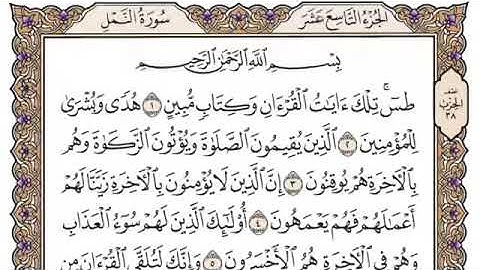 سُورَةُ النَّمْلِ الجُزْءُ التَّاسِعَ عَشَرَ
بِسْمِ اللَّهِ الرَّحْمَٰنِ الرَّحِيمِ
نصف
الحزب
٣٨
طسٓ ۚ تِلْكَ ءَايَٰتُ ٱلْقُرْءَانِ وَكِتَابٍ مُّبِينٍ ١ هُدًى وَبُشْرَىٰ
لِلْمُؤْمِنِينَ ٢ ٱلَّذِينَ يُقِيمُونَ ٱلصَّلَوٰةَ وَيُؤْتُونَ ٱلزَّكَوٰةَ وَهُم
بِٱلْءَاخِرَةِ هُمْ يُوقِنُونَ ٣ إِنَّ ٱلَّذِينَ لَا يُؤْمِنُونَ بِٱلْءَاخِرَةِ زَيَّنَّا لَهُمْ
أَعْمَٰلَهُمْ فَهُمْ يَعْمَهُونَ ٤ أُو۟لَٰٓئِكَ ٱلَّذِينَ لَهُمْ سُوٓءُ ٱلْعَذَابِ
وَهُمْ فِى ٱلْءَاخِرَةِ هُمُ ٱلْأَخْسَرُونَ ٥ وَإِنَّكَ لَتُلَقَّى ٱلْقُرْءَانَ مِن